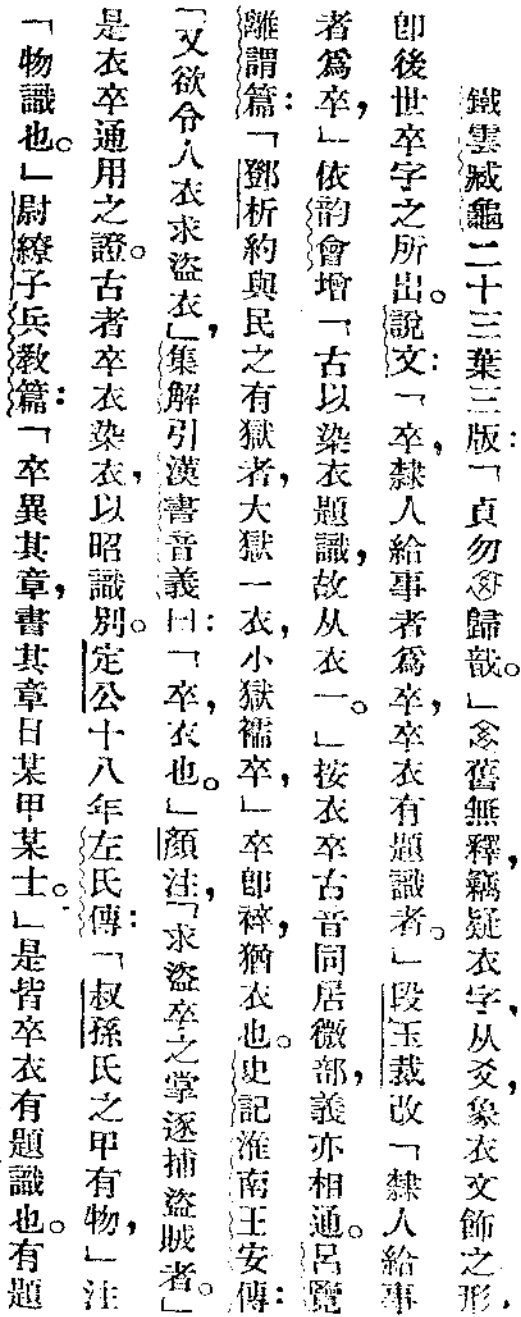 鐵雲臧龜二十三葉三版：「貞勿歸㪿。」舊無釋，竊疑衣字，从爻，象衣文飾之形，
卽後世卒字之所出。說文：「卒，隸人給事者爲卒，卒衣有題識者。」段玉裁改「隸人給事
者爲卒，」依韵會增「古以染衣題識，故从衣一。」按衣卒古音同居微部，義亦相通。呂覽
離謂篇：「鄧析約與民之有獄者，大獄一衣，小獄襦卒，」卒卽䘹，猶衣也。史記淮南王安傳：
「又欲令人衣求盜衣」，集解引漢書音義曰：「卒，衣也。」顏注，「求盜卒之掌逐捕盜賊者。」
是衣卒通用之證。古者卒衣染衣，以昭識別。定公十八年左氏傳：「叔孫氏之甲有物，」注
「物識也。」尉繚子兵敎篇：「卒異其章，書其章曰某甲某士。」是皆卒衣有題識也。有題